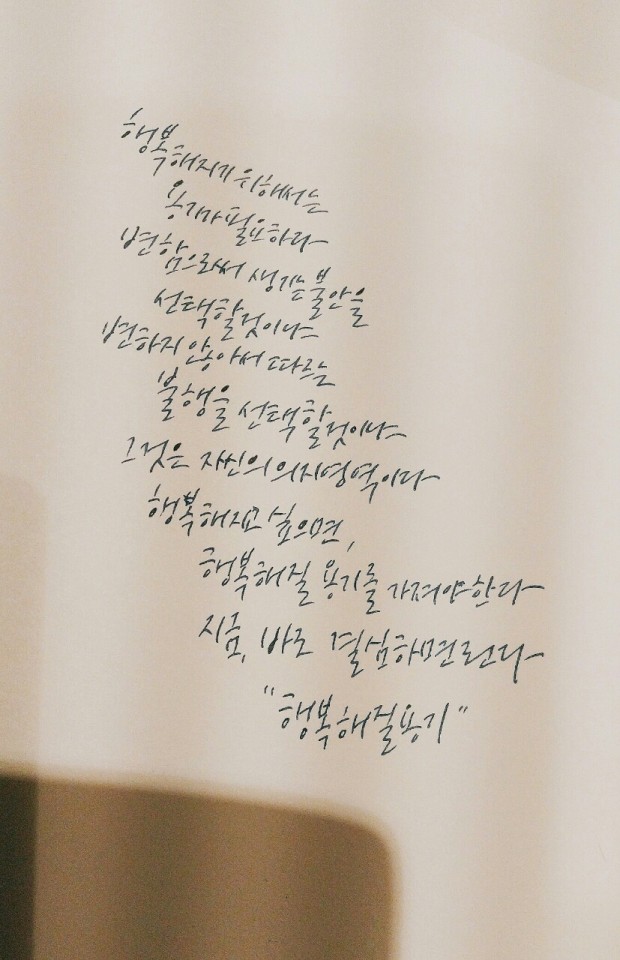 행복해지기 위해서는
용기가 필요하다
변함으로써 생기는 불안을
선택할것이냐
변하지 않아서 따르는
불행을 선택할것이냐
그것은 자신의 의지영역이다
행복해지고 싶으면,
행복해질 용기를 가져야한다
지금, 바로 결심하면된다
"행복해질용기"